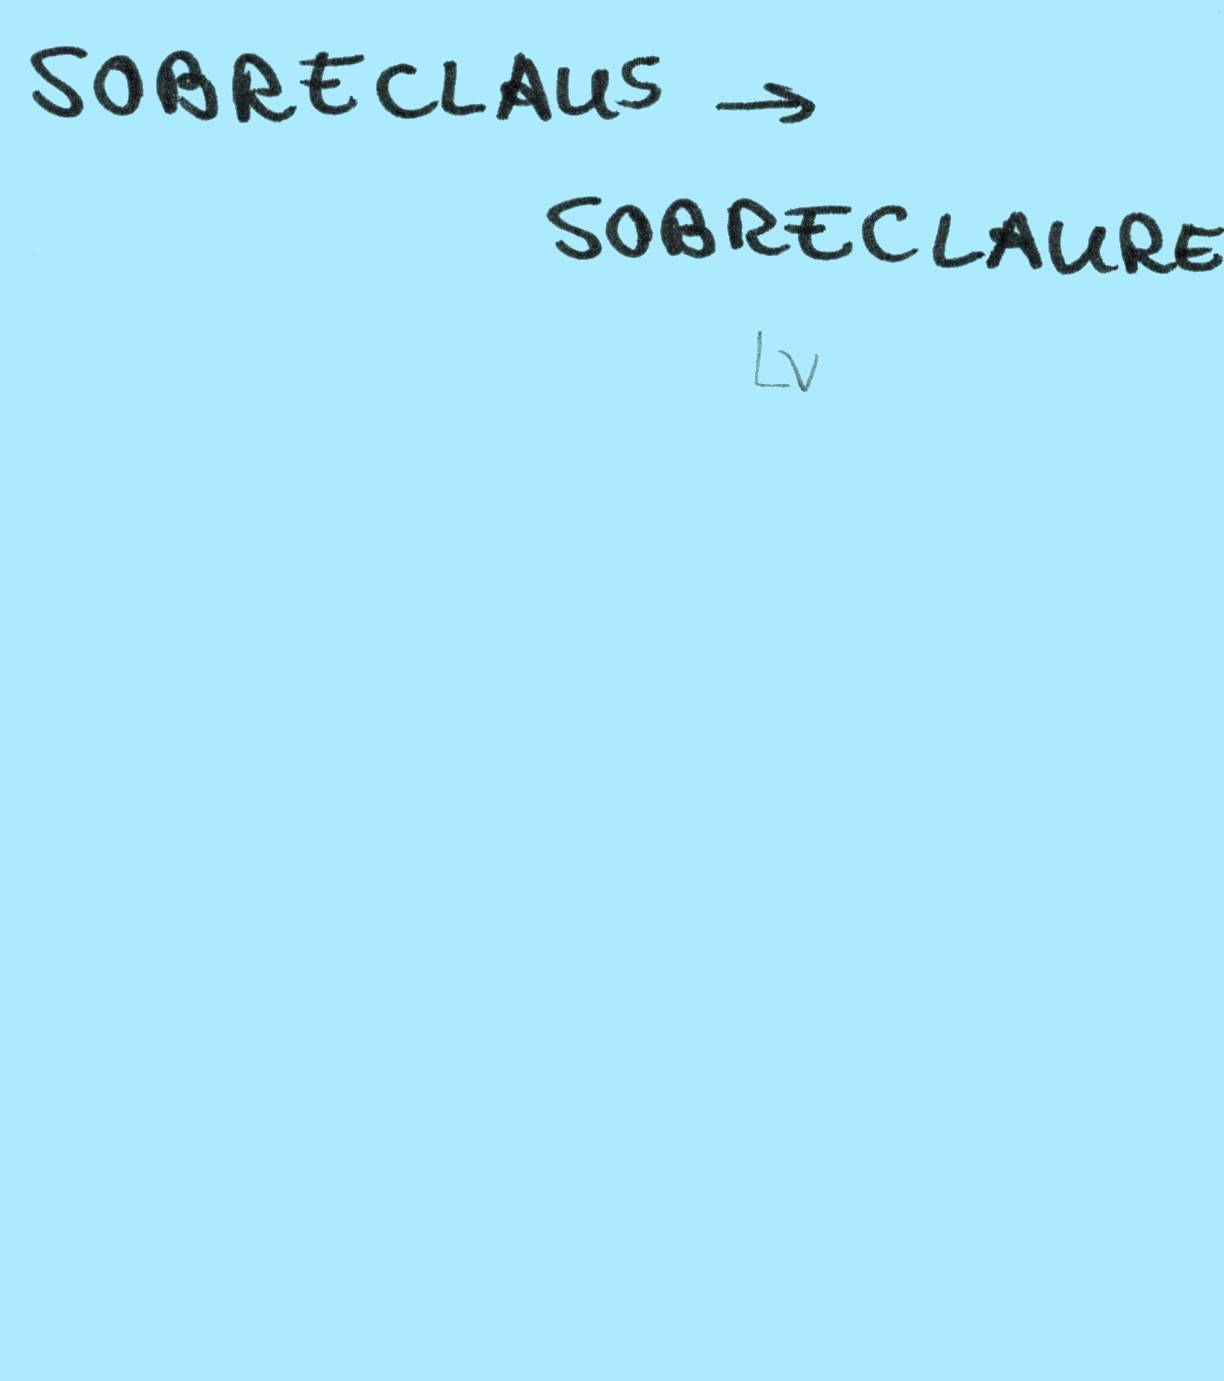 SOBRECLAUS →
SOBRECLAURE
LV